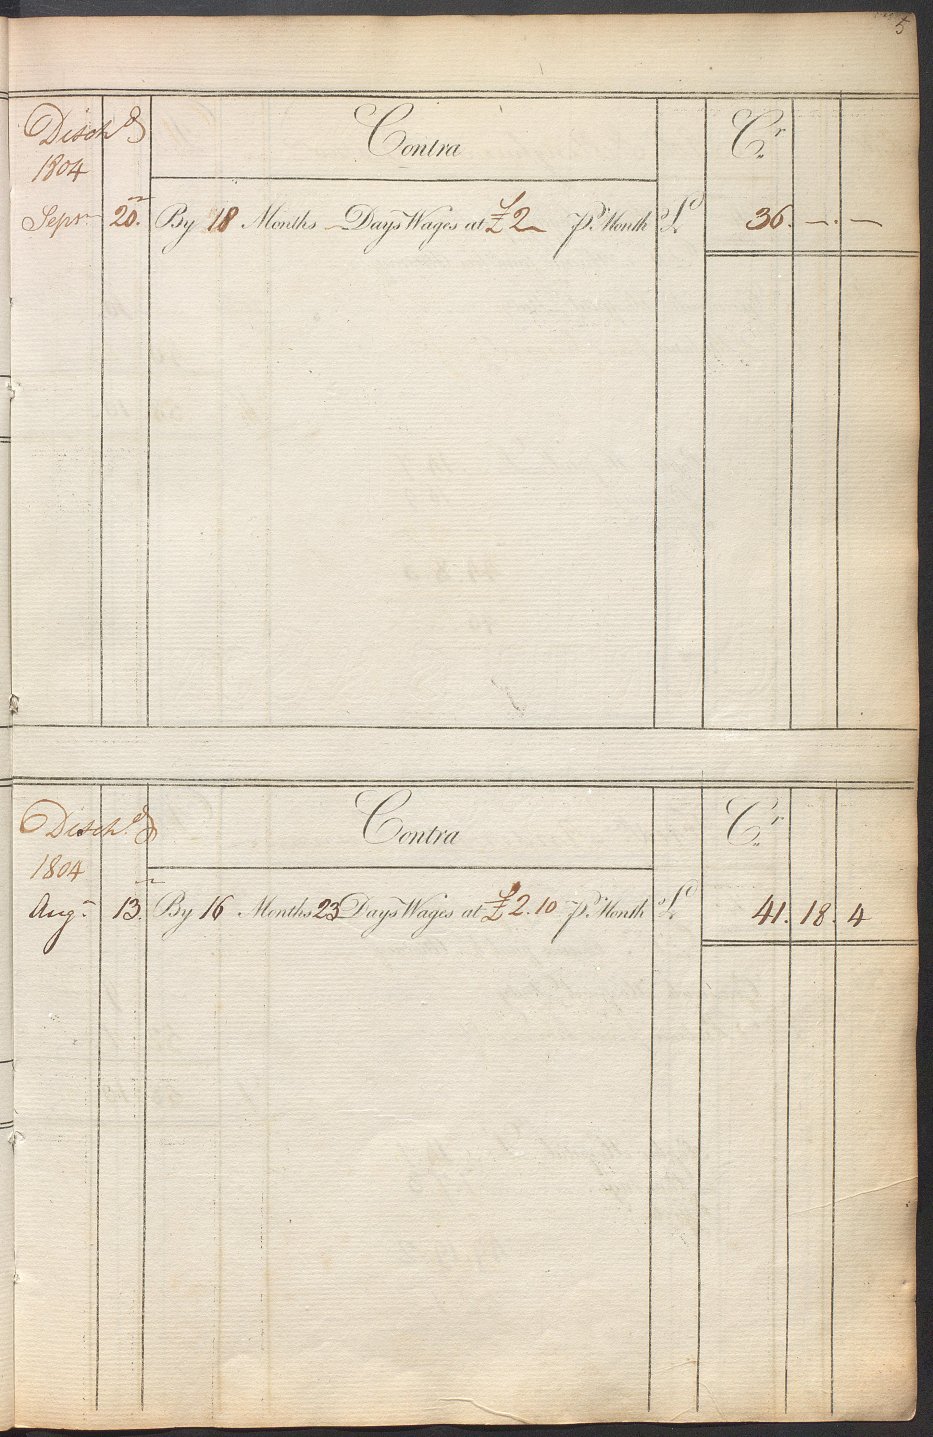 5
Disch.d Contra Cr
1804
Sepr 20. By 18 Months — Days Wages at £2 — Pr. Month £ 36. —. —
Disch.d Contra Cr
1804
Aug. 13. By 16 Months 23 Days Wages at £2.10 Pr. Month £ 41. 18. 4